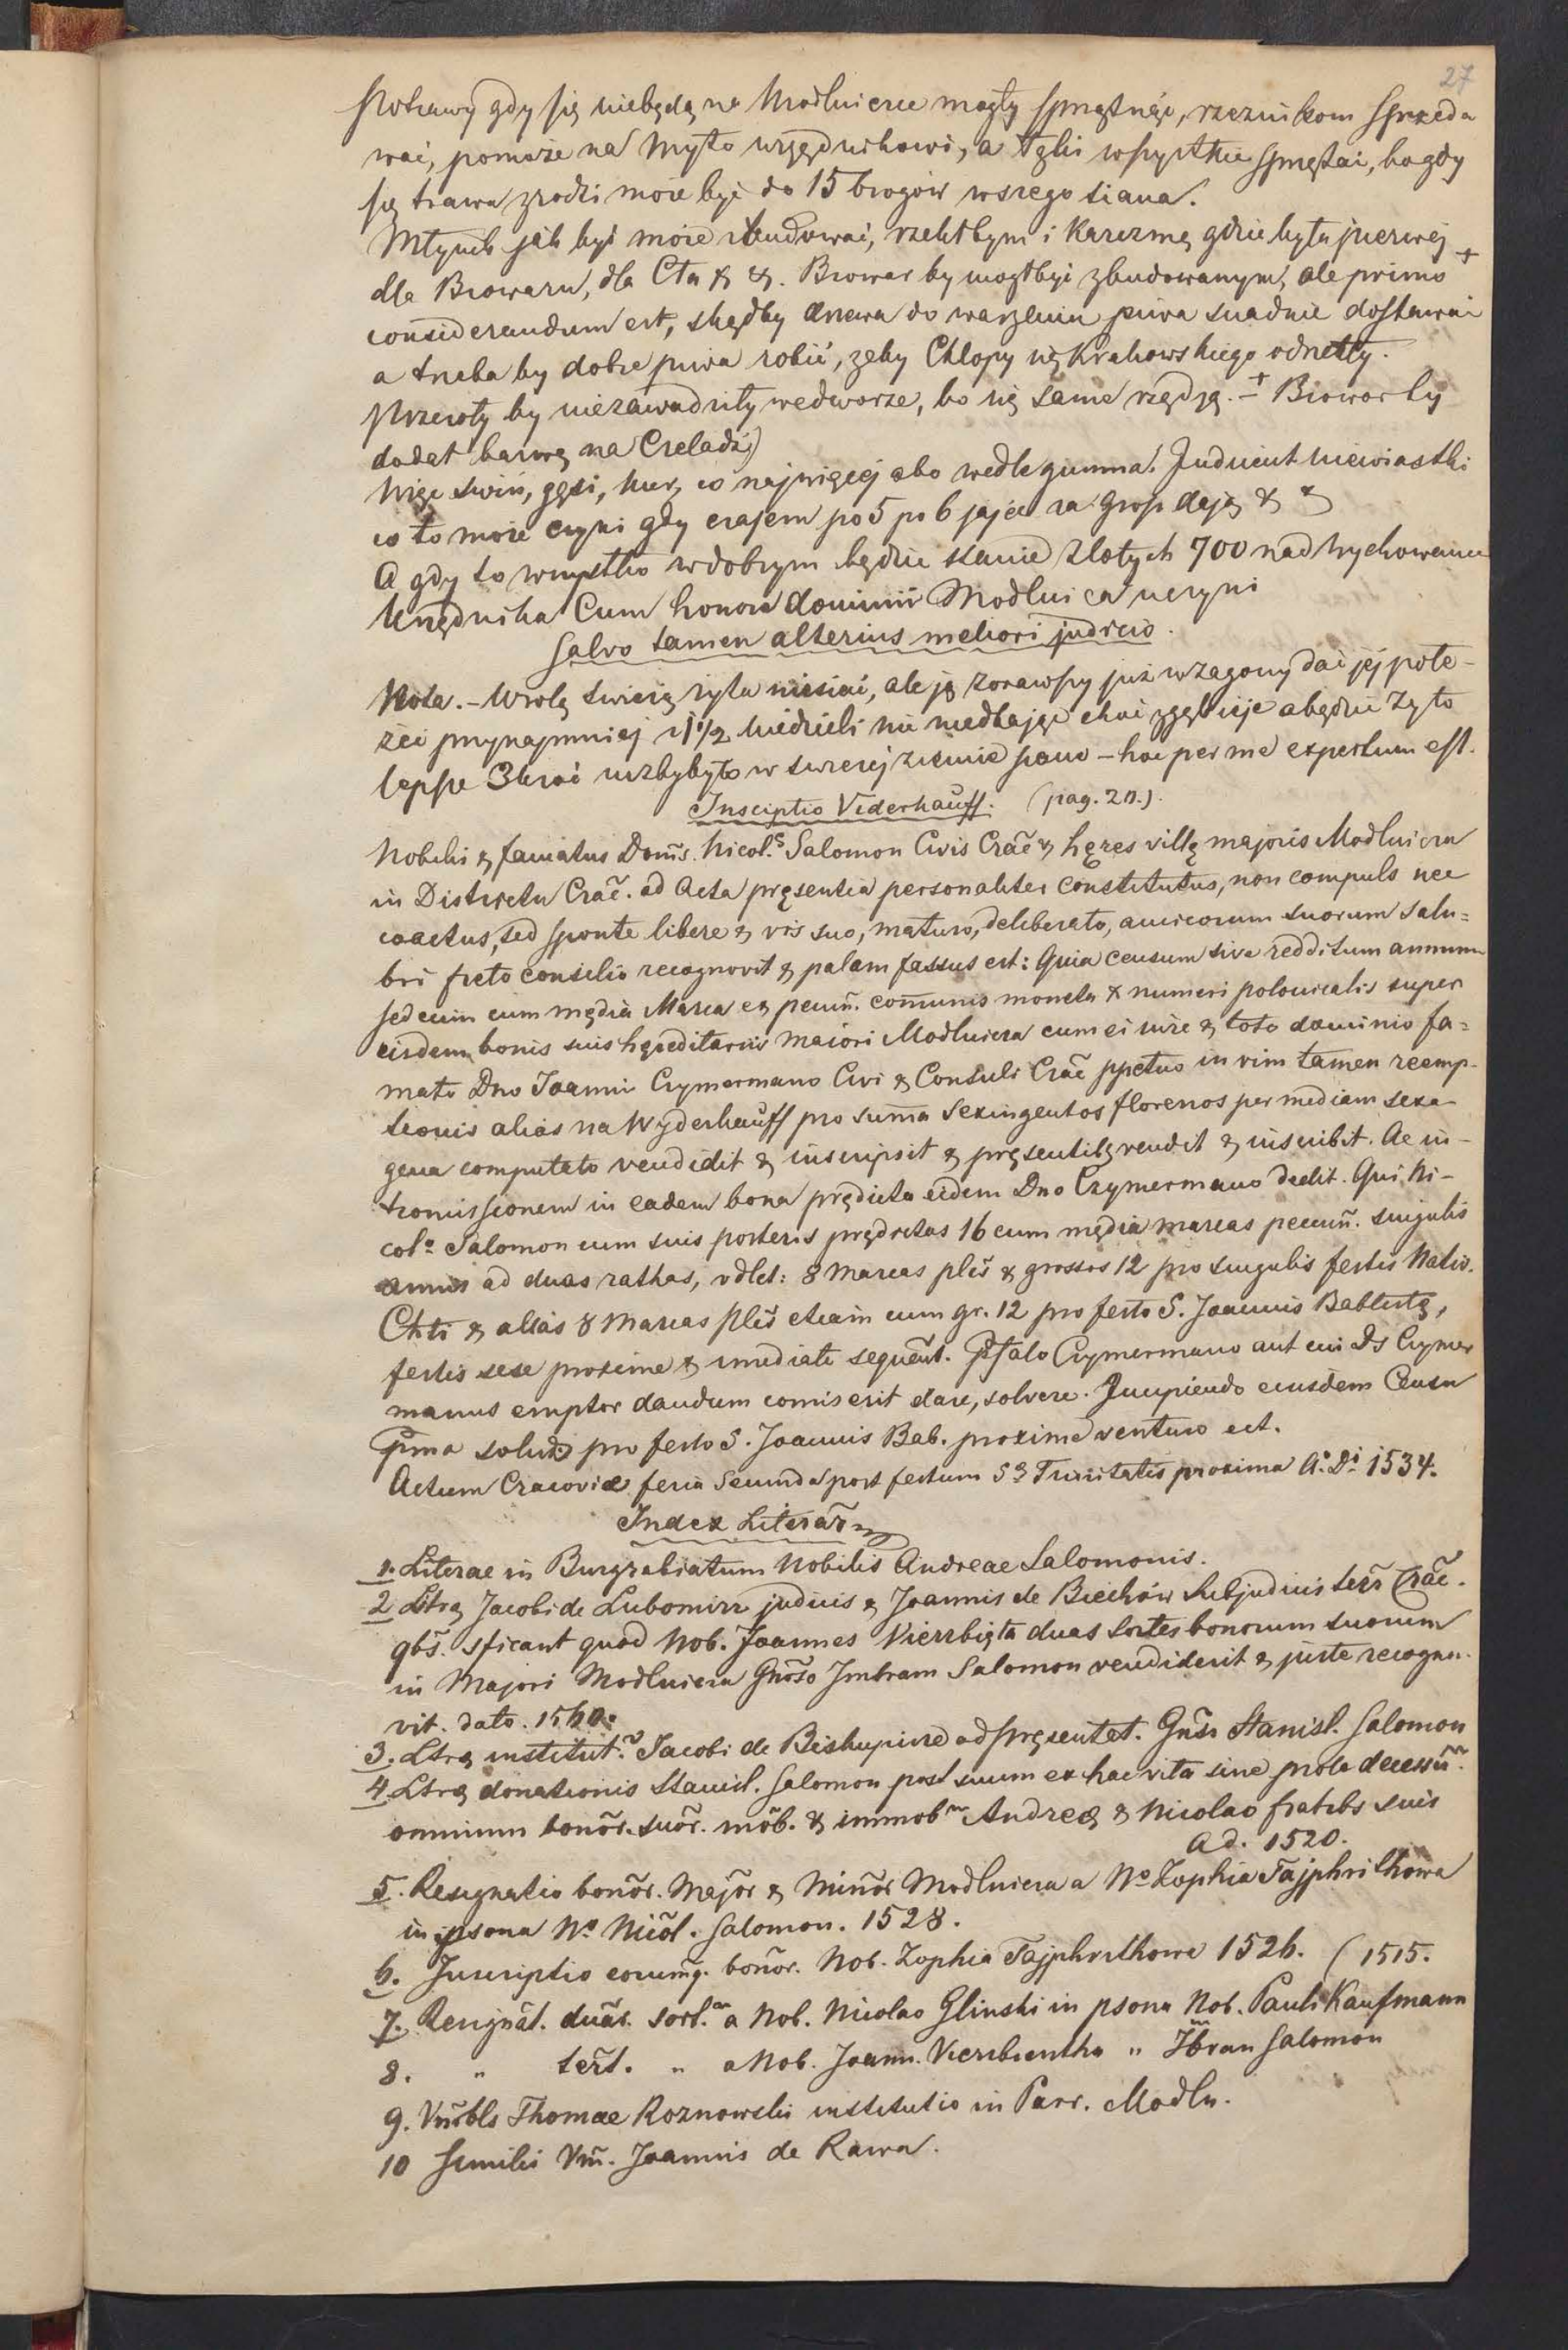 27
Potrawy gdy się niebędą na Modlnicze mogły spasznéje, rzeznikom sprzeda
wać, pomoże na Myto urzędnikowi, a tylu wszystkie spaszać, bo gdy
się trawa zrodzi może być do 15 brogów wszego siana.
Młynik jak być może zbudować, rzekłbym i Karczmę gdzie była pierwéj
dla Browaru, dla Cła & &. Browar by mógł być zbudowanym, ale primo +
considerandum est, skądby drewa do warzenia piwa snadnie dostawać
a trzeba by dobre piwa robić, żeby Chłopy się Krakowskiego odnęciły.
Pszczoły by niezawadziły wedworze, bo się same rządzą. + Browar by
dodał barwę na Czeladź)
Więc świń, gęsi, kur, co najwięcej abo wedle gumna. Judicent niewiastki
co to może czyni gdy czasem po 5 po 6 jajec za grosz dają & &
A gdy to wszystko w dobrym będzie stanie złotych 700 nad wychowanie
Urzędnika Cum honore dominii Modlnica uczyni
Salvo tamen alterius meliori judicio.
Nota. – W rolę świeżą żyta niesiać, ale ję zorawszy już w zagony dać jéj pole-
żéć przynajmniéj 1 1/2 niedzieli nie niedbając choć zgębieje a będzie żyto
lepsze 3kroć niżbybyło w świeżej ziemie siano – hoc per me expertum est.
Insciptio Viderhauff. (pag. 20.)
Nobilis & famatus Doms. Nicol.s Salomon Civis Crac & hęres villę majoris Modlnicza
in Districtu Crac. ad Acta pręsentia personaliter constitutus, non compuls nec
coactus, sed sponte libere & vis suo, maturo, deliberato, amicorum suorum salu=
bri freto consilio recognovit & palam fassus est: Quia censum sive redditum annuum
sedecim cum mędia Marca es pecun. comunis moneta & numeri polonicalis super
eisdem bonis suis hęreditariis maiori Modlnicza cum ei iure & toto dominio fa=
mato Dno Joanni Czymermano Civi & Consuli Crac ppetuo in vim tamen reemp-
tionis alias na Wyderkauff pro suma Sexingentos florenos per mediam sexa-
gena computato vendidit & inscripsit & pręsentibz vendit & inscribit. Ac in-
tromissionem in eadem bona prędicta eidem Dno Czymermano dedit. Qui Ni-
col.s Salomon cum suis posteris prędictas 16 cum mędia marcas pecun. singulis
annis ad duas rathas, vdlet: 8 Marcas plis & grossos 12 pro singulis festis Nativ.
Chti & alias 8 Marcas plis etiam cum gr. 12 pro festo S. Joannis Babtistę,
festis sese proxime & imediate sequent. Pfato Czymermano aut cui Ds Czymer
manus emptor dandum comiserit dare, solvere. Incipiendo eiusdem Censu
pma solut. pro festo S. Joannis Bab. proxime venturo est.
Actum Cracoviæ feria Secunda post festum S. Trinitatis proxima A.o D.i 1534.
Index Literar
1. Literae in Burgrabiatum Nobilis Andreae Salomonis.
2 Ltrę Jacobi de Lubomirz judicis & Joannis de Biechów Subjudicis terr Crac.
qbs. sficant quod Nob. Joannes Vierzbięta duas sortes bonorum suorum
in Majori Modlnicza Gnoso Jmbram Salomon vendiderit & juste recogno-
vit. dato. 1560.
3. Ltrę institut. Jacobi de Biskupice ad pręsentat. Gnsi Stanisl. Salomon
4 Ltrę donationis Stanisl. Salomon post suum ex hac vita sine prole decessu.
omnium bonor. suor. mob. & immob. Andreę & Nicolao fratrbs suis
Ad. 1520.
5. Resignatio bonor. Major & Minor Modlnicza a No Zophia Tajphrithowa
in psona No. Nicol. Salomon. 1528.
6. Inscriptio eorumq. bonor. Nob. Zophia Tajphrithowa 1526. (1515.
7. Resignat. duar. sort. a Nob. Nicolao Glinski in psona Nob. Pauli Kaufmann
8. " tert. " a Nob. Joann. Vierzbientha " Jmbran Salomon
9. Vnrbls Thomae Roznowski institutio in Parr. Modln.
10 Similis Vm. Joannis de Rawa.